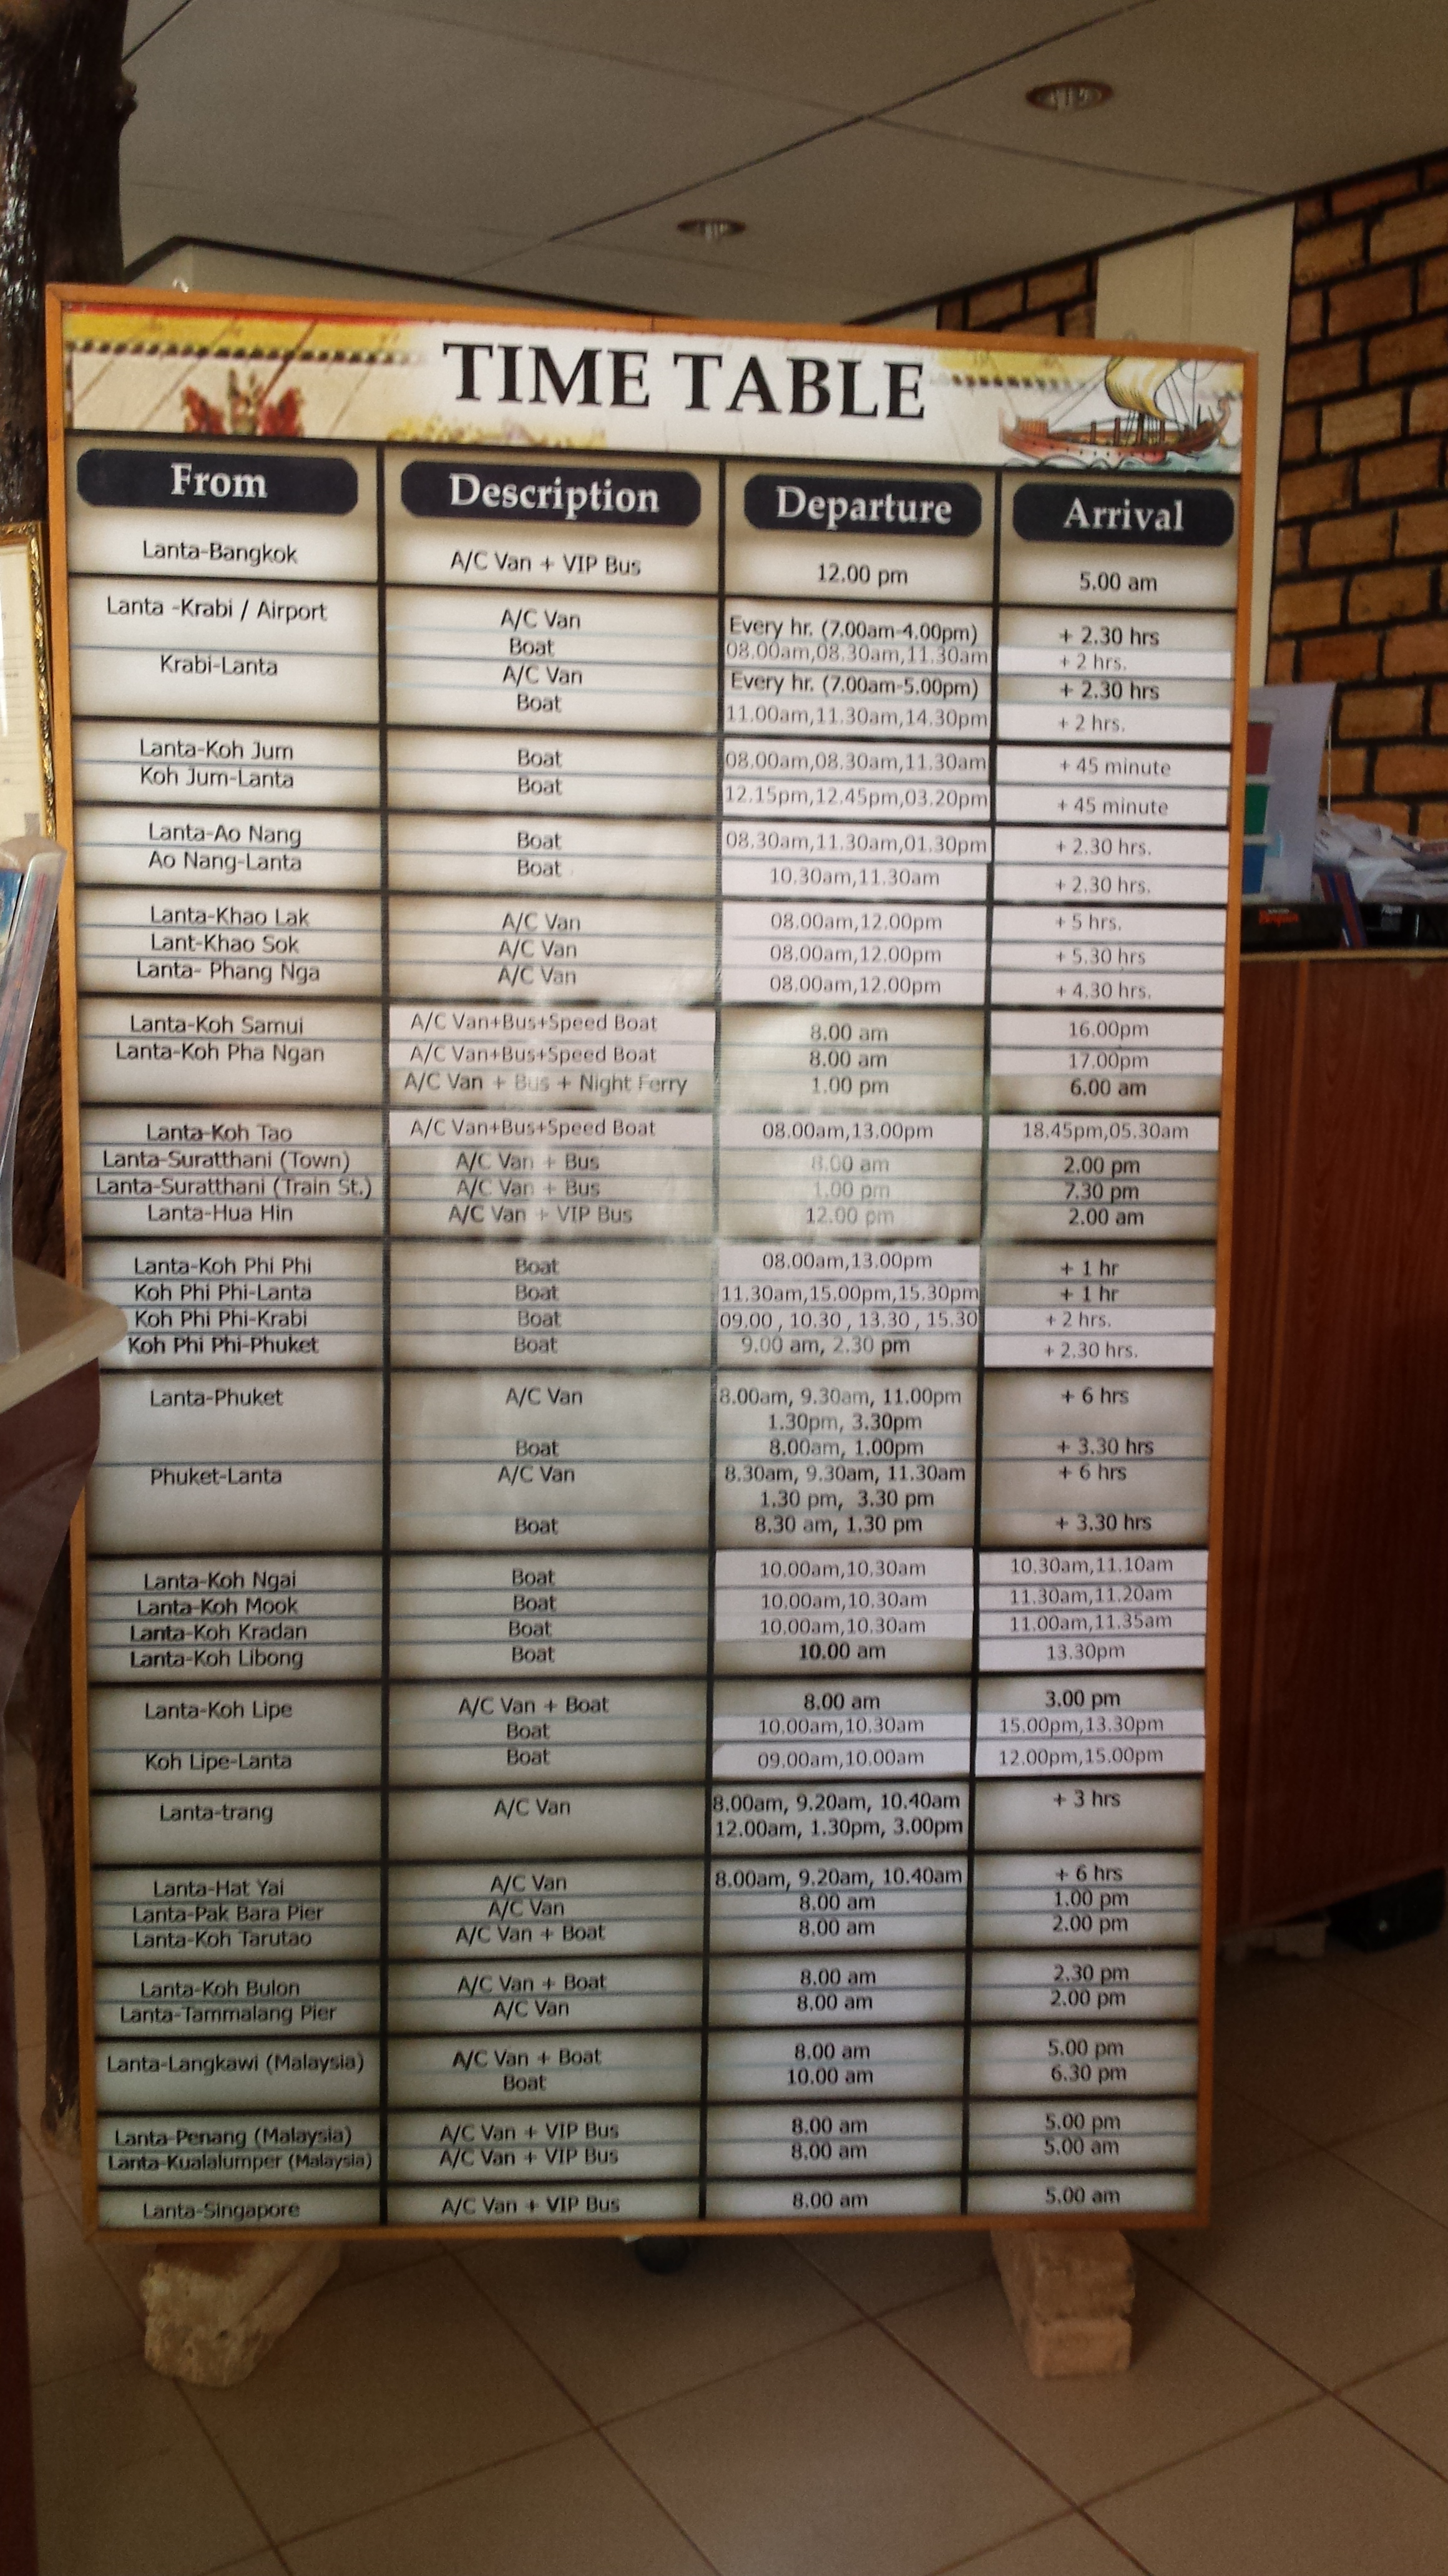 TIME TABLE
From Description Departure Arrival
Lanta-Bangkok A/C Van + VIP Bus 12.00 pm 5.00 am
Lanta -Krabi / Airport A/C Van Every hr. (7.00am-4.00pm) + 2.30 hrs
Boat 08.00am,08.30am,11.30am + 2 hrs.
Krabi-Lanta A/C Van Every hr. (7.00am-5.00pm) + 2.30 hrs
Boat 11.00am,11.30am,14.30pm + 2 hrs.
Lanta-Koh Jum Boat 08.00am,08.30am,11.30am + 45 minute
Koh Jum-Lanta Boat 12.15pm,12.45pm,03.20pm + 45 minute
Lanta-Ao Nang Boat 08.30am,11.30am,01.30pm + 2.30 hrs.
Ao Nang-Lanta Boat 10.30am,11.30am + 2.30 hrs.
Lanta-Khao Lak A/C Van 08.00am,12.00pm + 5 hrs.
Lant-Khao Sok A/C Van 08.00am,12.00pm + 5.30 hrs
Lanta- Phang Nga A/C Van 08.00am,12.00pm + 4.30 hrs.
Lanta-Koh Samui A/C Van+Bus+Speed Boat 8.00 am 16.00pm
Lanta-Koh Pha Ngan A/C Van+Bus+Speed Boat 8.00 am 17.00pm
A/C Van + Bus + Night Ferry 1.00 pm 6.00 am
Lanta-Koh Tao A/C Van+Bus+Speed Boat 08.00am,13.00pm 18.45pm,05.30am
Lanta-Suratthani (Town) A/C Van + Bus 8.00 am 2.00 pm
Lanta-Suratthani (Train St.) A/C Van + Bus 1.00 pm 7.30 pm
Lanta-Hua Hin A/C Van + VIP Bus 12.00 pm 2.00 am
Lanta-Koh Phi Phi Boat 08.00am,13.00pm + 1 hr
Koh Phi Phi-Lanta Boat 11.30am,15.00pm,15.30pm + 1 hr
Koh Phi Phi-Krabi Boat 09.00 , 10.30 , 13.30 , 15.30 + 2 hrs.
Koh Phi Phi-Phuket Boat 9.00 am, 2.30 pm + 2.30 hrs.
Lanta-Phuket A/C Van 8.00am, 9.30am, 11.00pm + 6 hrs
1.30pm, 3.30pm
Boat 8.00am, 1.00pm + 3.30 hrs
Phuket-Lanta A/C Van 8.30am, 9.30am, 11.30am + 6 hrs
1.30 pm, 3.30 pm
Boat 8.30 am, 1.30 pm + 3.30 hrs
Lanta-Koh Ngai Boat 10.00am,10.30am 10.30am,11.10am
Lanta-Koh Mook Boat 10.00am,10.30am 11.30am,11.20am
Lanta-Koh Kradan Boat 10.00am,10.30am 11.00am,11.35am
Lanta-Koh Libong Boat 10.00 am 13.30pm
Lanta-Koh Lipe A/C Van + Boat 8.00 am 3.00 pm
Boat 10.00am,10.30am 15.00pm,13.30pm
Koh Lipe-Lanta Boat 09.00am,10.00am 12.00pm,15.00pm
Lanta-trang A/C Van 8.00am, 9.20am, 10.40am + 3 hrs
12.00am, 1.30pm, 3.00pm
Lanta-Hat Yai A/C Van 8.00am, 9.20am, 10.40am + 6 hrs
Lanta-Pak Bara Pier A/C Van 8.00 am 1.00 pm
Lanta-Koh Tarutao A/C Van + Boat 8.00 am 2.00 pm
Lanta-Koh Bulon A/C Van + Boat 8.00 am 2.30 pm
Lanta-Tammalang Pier A/C Van 8.00 am 2.00 pm
Lanta-Langkawi (Malaysia) A/C Van + Boat 8.00 am 5.00 pm
Boat 10.00 am 6.30 pm
Lanta-Penang (Malaysia) A/C Van + VIP Bus 8.00 am 5.00 pm
Lanta-Kualalumper (Malaysia) A/C Van + VIP Bus 8.00 am 5.00 am
Lanta-Singapore A/C Van + VIP Bus 8.00 am 5.00 am